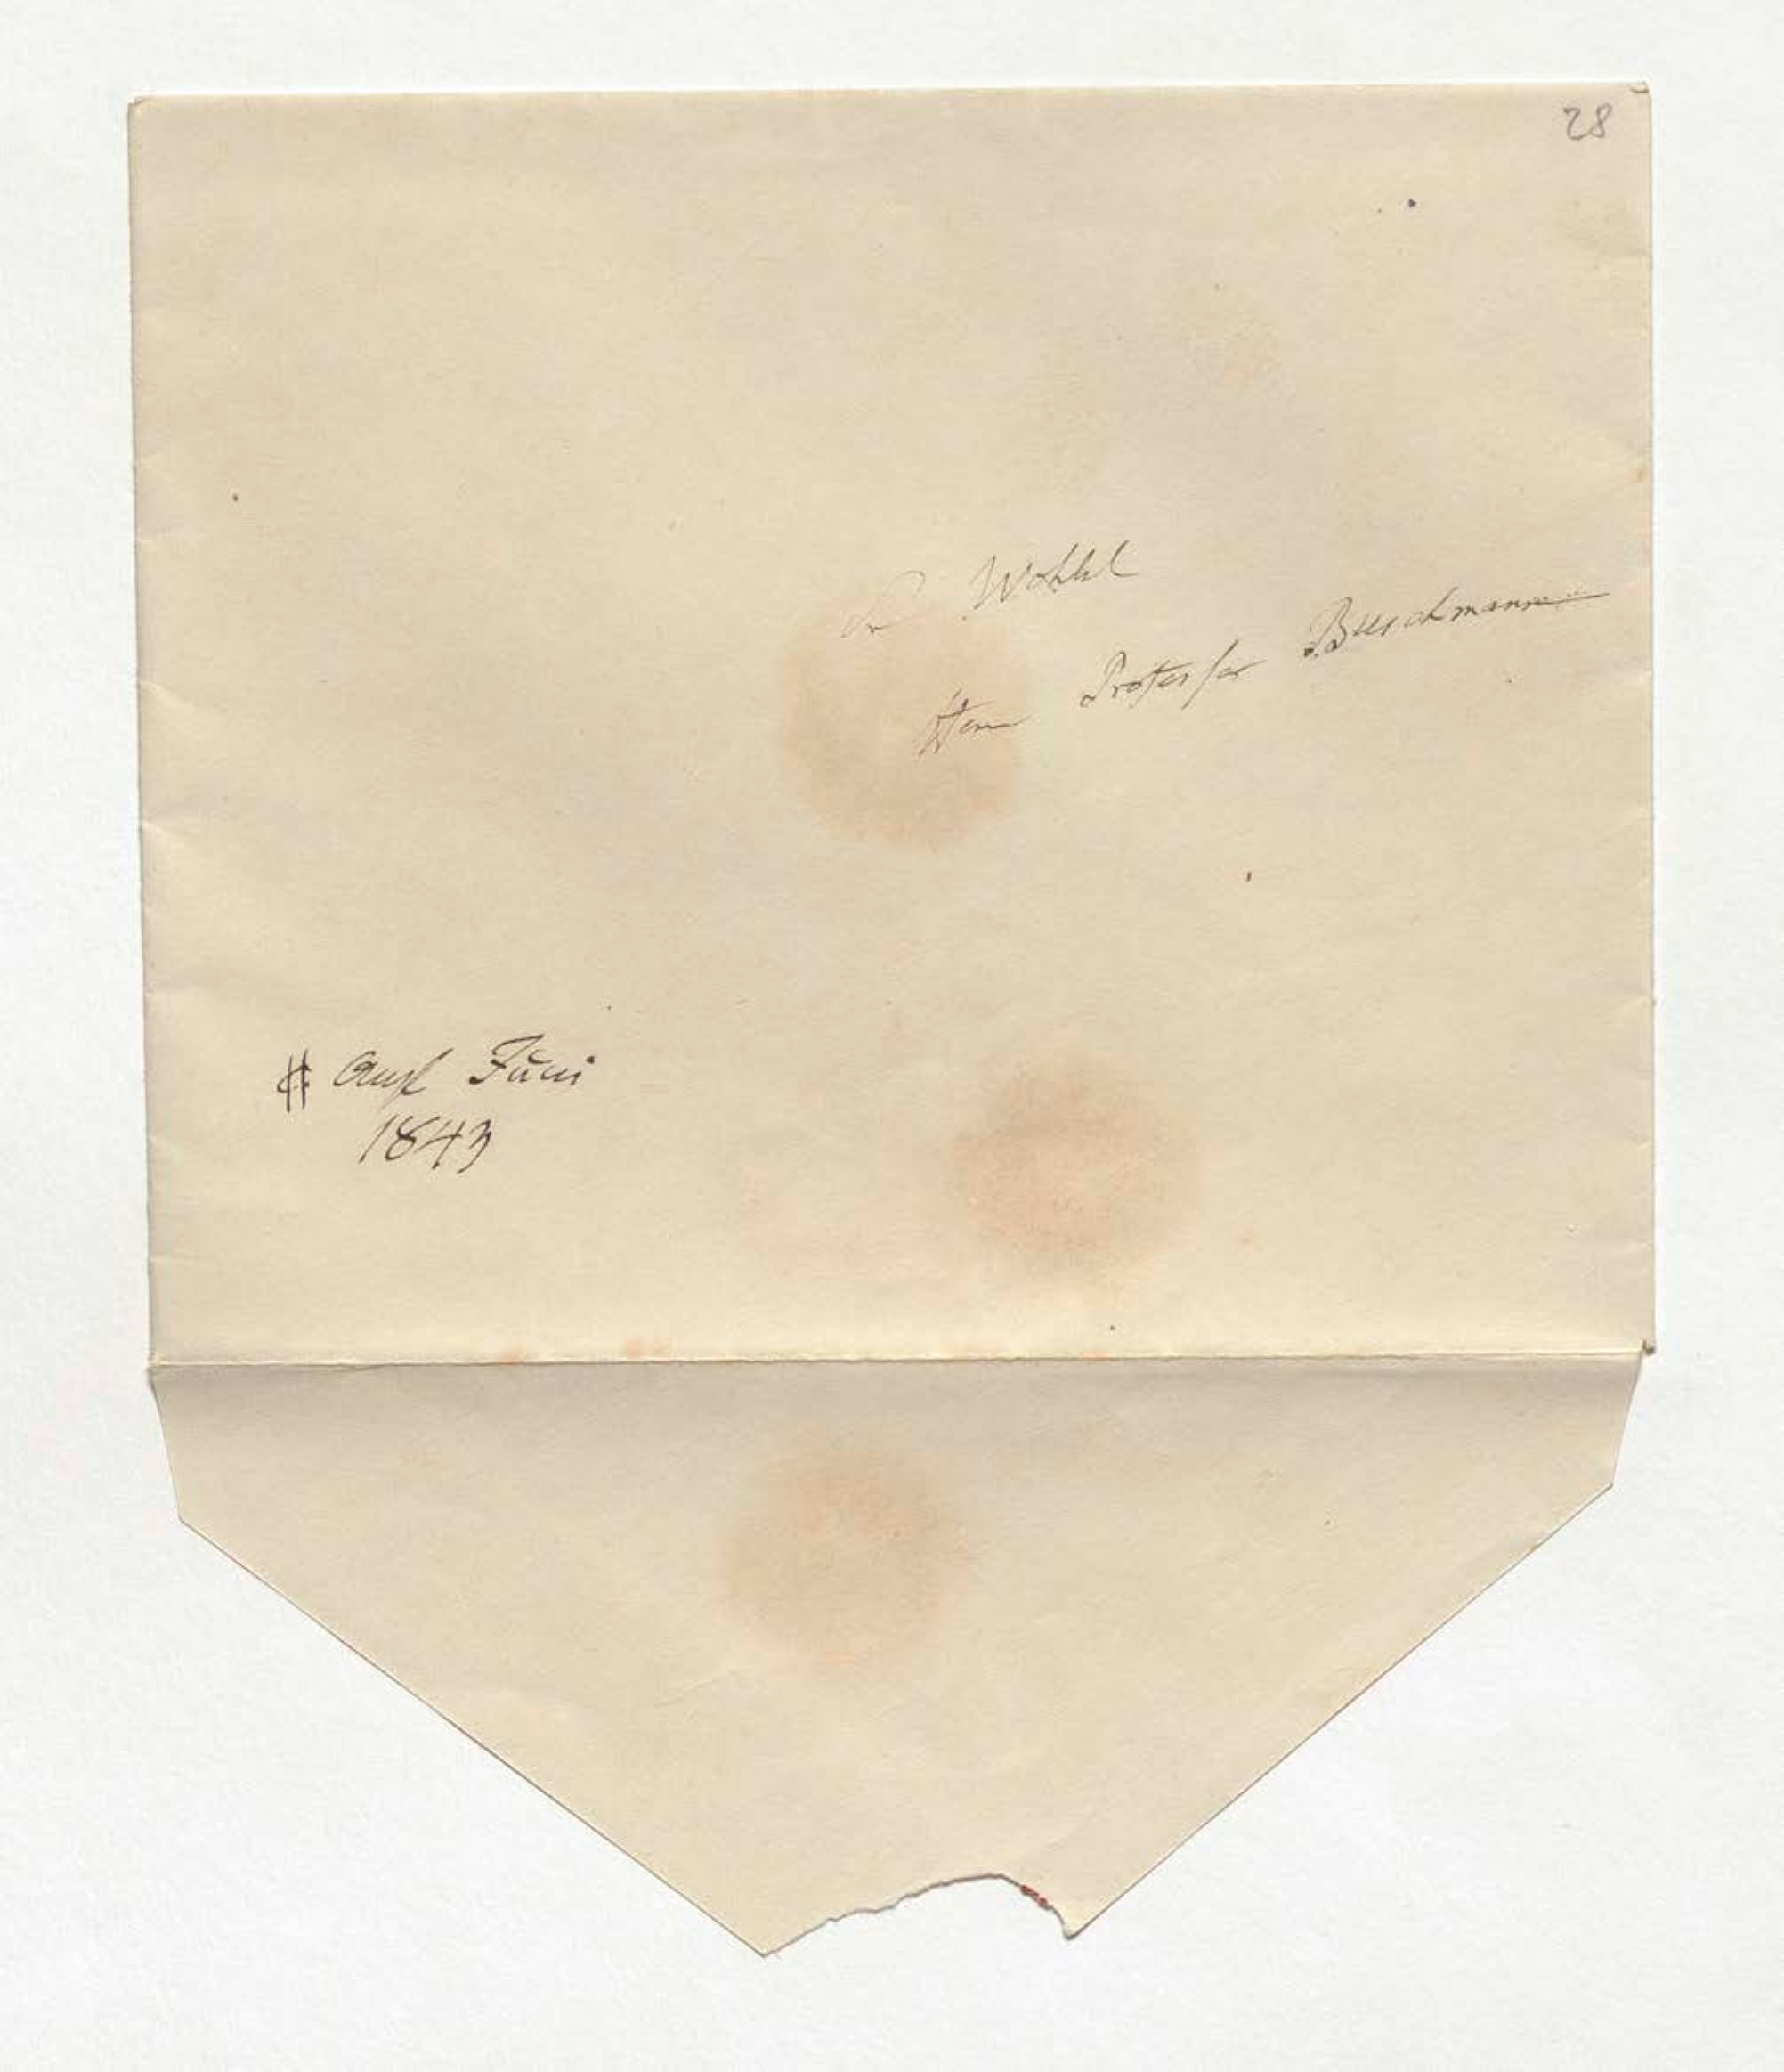 28
Sr Wohlgeb
Herrn Professor Buschmann
Anf Juni
1843